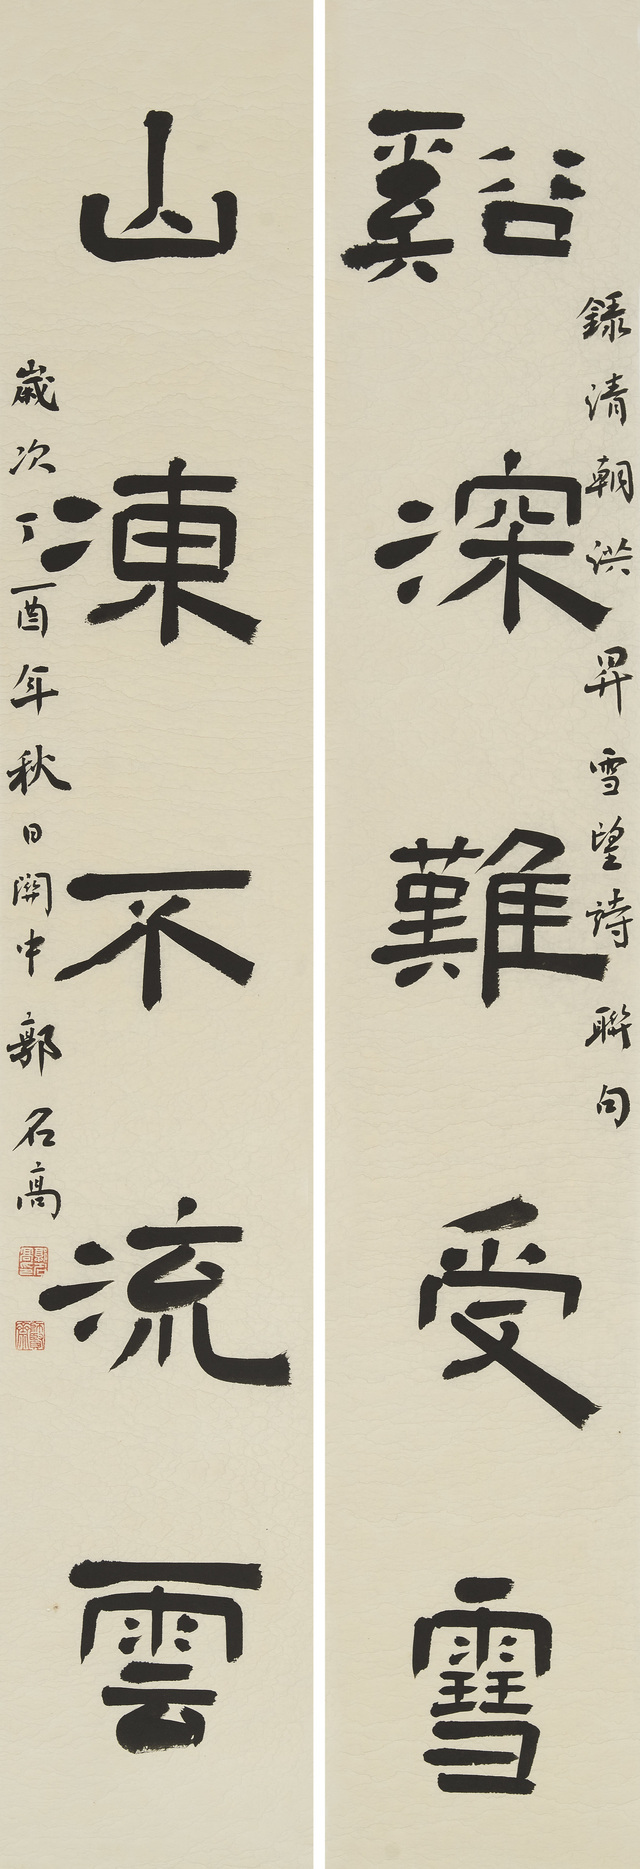 谿深難受雪
山凍不流雲
錄清朝洪昇雪望詩聯句
歲次丁酉年秋日關中郭名高